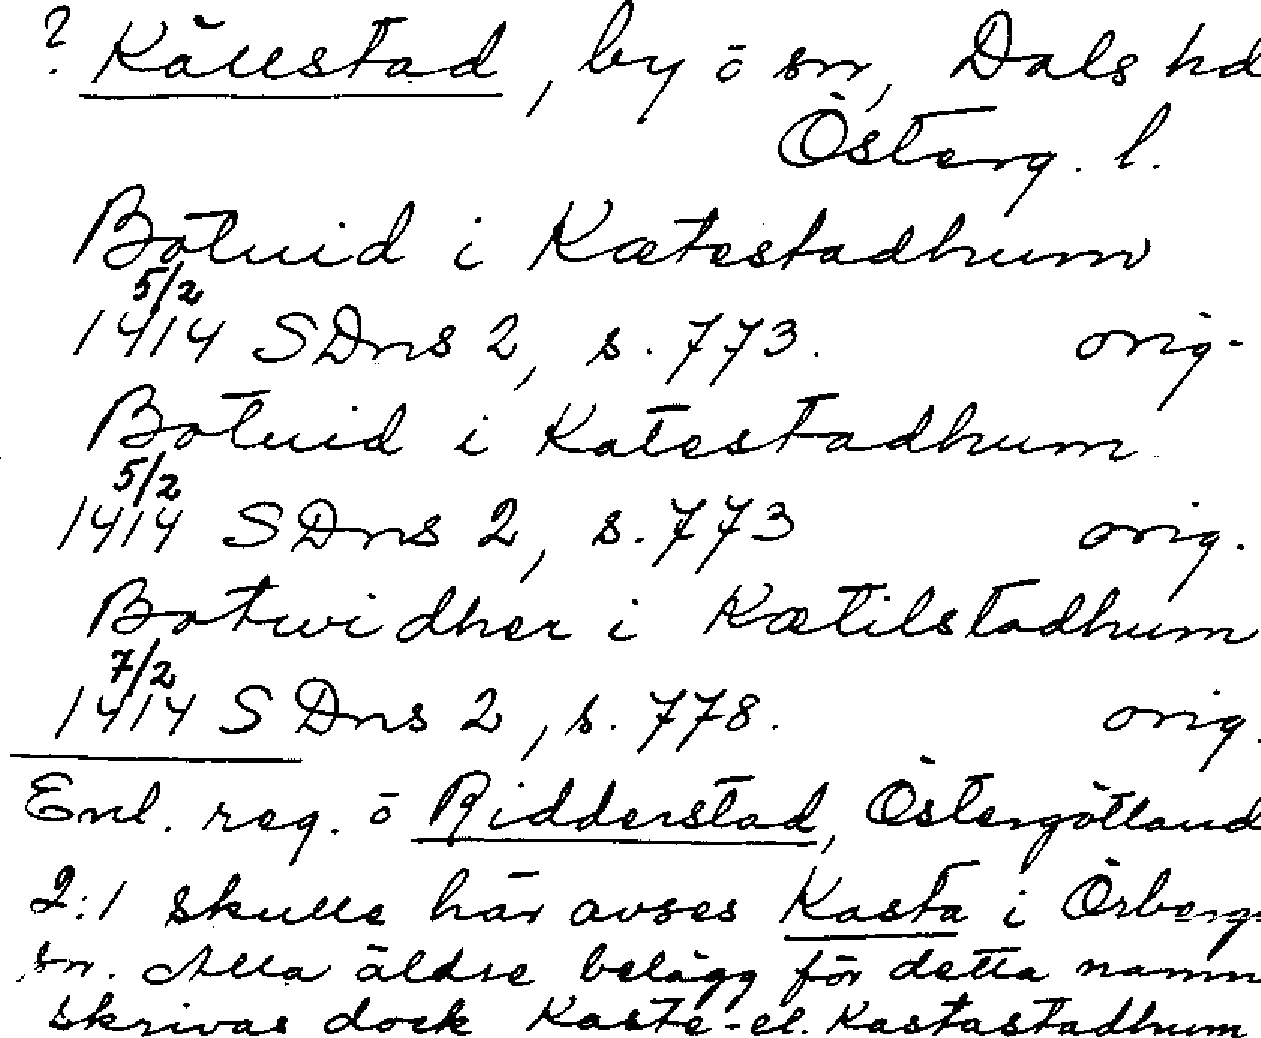 ? Källstad, by ö sn, Dals hd
Österg. l.
Botuid i Kætestadhum
5/2
1414 SDns 2, s. 773. orig.
Botuid i Katestadhum
5/2
1414 SDns 2, s. 773 orig.
Botwidher i Kætilstadhum
7/2
1414 SDns 2, s. 778. orig.
Enl. reg. ö Ridderstad, Östergötland
2:1 skulle här avses Kasta i Örbergs
sn. Alla äldre belägg för detta namn
skrivas dock Kaste- el. Kastastadhum